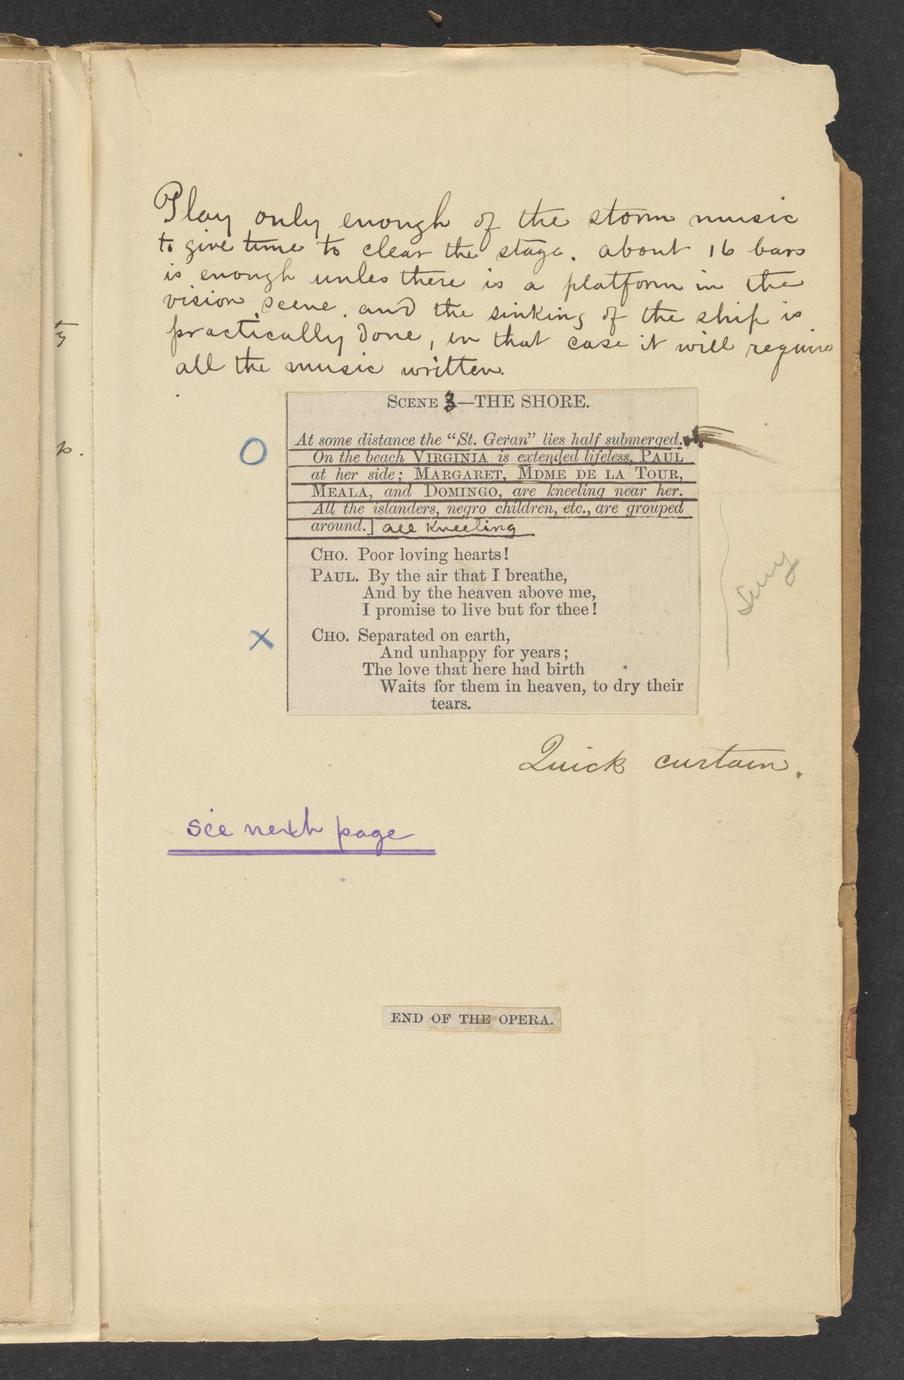 Play only enough of the storm music
to give time to clear the stage. about 16 bars
is enough unles there is a platform in the
vision scene. and the sinking of the ship is
practically done, in that case it will require
all the music written.
SCENE 3—THE SHORE.
At some distance the "St. Geran" lies half submerged.
On the beach VIRGINIA is extended lifeless, PAUL
at her side; MARGARET, MDME DE LA TOUR,
MEALA, and DOMINGO, are kneeling near her.
All the islanders, negro children, etc., are grouped
around.] all kneeling
CHO. Poor loving hearts!
PAUL. By the air that I breathe,
And by the heaven above me,
I promise to live but for thee!
X
CHO. Separated on earth,
And unhappy for years;
The love that here had birth
Waits for them in heaven, to dry their
tears.
Quick curtain.
see next page
END OF THE OPERA.